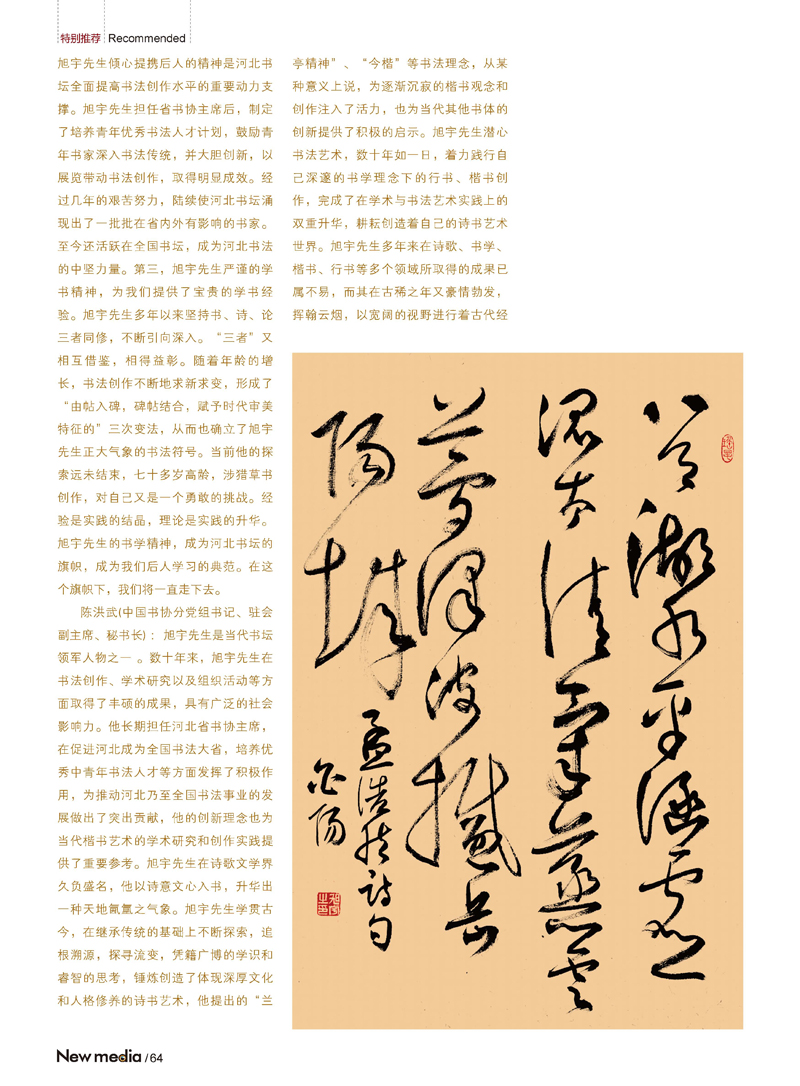 特别推荐 Recommended
旭宇先生倾心提携后人的精神是河北书
坛全面提高书法创作水平的重要动力支
撑。旭宇先生担任省书协主席后，制定
了培养青年优秀书法人才计划，鼓励青
年书家深入书法传统，并大胆创新，以
展览带动书法创作，取得明显成效。经
过几年的艰苦努力，陆续使河北书坛涌
现出了一批批在省内外有影响的书家。
至今还活跃在全国书坛，成为河北书法
的中坚力量。第三，旭宇先生严谨的学
书精神，为我们提供了宝贵的学书经
验。旭宇先生多年以来坚持书、诗、论
三者同修，不断引向深入。“三者”又
相互借鉴，相得益彰。随着年龄的增
长，书法创作不断地求新求变，形成了
“由帖入碑，碑帖结合，赋予时代审美
特征的”三次变法，从而也确立了旭宇
先生正大气象的书法符号。当前他的探
索远未结束，七十多岁高龄，涉猎草书
创作，对自己又是一个勇敢的挑战。经
验是实践的结品，理论是实践的升华。
旭宇先生的书学精神，成为河北书坛的
旗帜，成为我们后人学习的典范。在这
个旗帜下，我们将一直走下去。
陈洪武(中国书协分党组书记、驻会
副主席、秘书长)：旭宇先生是当代书坛
领军人物之一 。数十年来，旭宇先生在
书法创作、学术研究以及组织活动等方
面取得了丰硕的成果，具有广泛的社会
影响力。他长期担任河北省书协主席，
在促进河北成为全国书法大省，培养优
秀中青年书法人才等方面发挥了积极作
用，为推动河北乃至全国书法事业的发
展做出了突出贡献，他的创新理念也为
当代楷书艺术的学术研究和创作实践提
供了重要参考。旭宇先生在诗歌文学界
久负盛名，他以诗意文心入书，升华出
一种天地氤氲之气象。旭宇先生学贯古
今，在继承传统的基础上不断探索，追
根溯源，探寻流变，凭籍广博的学识和
睿智的思考，锤炼创造了体现深厚文化
和人格修养的诗书艺术，他提出的“兰
亭精神”、“今楷”等书法理念，从某
种意义上说，为逐渐沉寂的楷书观念和
创作注入了活力，也为当代其他书体的
创新提供了积极的启示。旭宇先生潜心
书法艺术，数十年如一日，着力践行自
己深邃的书学理念下的行书、楷书创
作，完成了在学术与书法艺术实践上的
双重升华，耕耘创造着自己的诗书艺术
世界。旭宇先生多年来在诗歌、书学、
楷书、行书等多个领域所取得的成果已
属不易，而其在古稀之年又豪情勃发，
挥翰云烟，以宽阔的视野进行着古代经
八月湖水平涵虚
混太清气蒸云
梦泽波撼岳
阳城
孟浩然诗句
New media /64